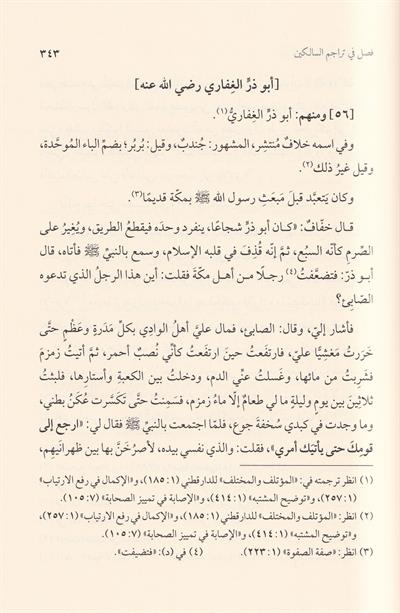 فصل في تراجم السالكين ٣٤٣
[أبو ذرٍّ الغِفاري رضي الله عنه]
[٥٦] ومنهم: أبو ذرٍّ الغِفاريُّ(١).
وفي اسمه خلافٌ مُنتشِر، المشهور: جُندبٌ، وقيل: بُربُر؛ بضمِّ الباء الموحَّدة،
وقيل غيرُ ذلك(٢).
وكان يَتعبَّد قبلَ مَبعَثِ رسول الله ﷺ بمكّة قديمًا(٣).
قال خفَّافٌ: «كان أبو ذرٍّ شجاعًا، ينفرد وحدَه فيقطعُ الطريق، ويُغِيرُ على
الصِّرمِ كأنّه السبُع، ثمَّ إنّه قُذِفَ في قلبه الإسلام، وسمع بالنبيِّ ﷺ فأتاه، قال
أبو ذرّ: فتضعَّفتُ(٤) رجلًا من أهل مكّة فقلت: أين هذا الرجلُ الذي تدعوه
الصّابئ؟
فأشار إليّ، وقال: الصابئ، فمال عليَّ أهلُ الوادي بكلِّ مَدَرةٍ وعَظْمٍ حتَّى
خَرَرتُ مَغشِيًّا عليّ، فارتَفعتُ حينَ ارتفَعتُ كأنّي نُصبٌ أحمر، ثمَّ أتيتُ زمزمَ
فشَرِبتُ من مائها، وغسلتُ عنّي الدم، ودخلتُ بين الكعبةِ وأستارِها، فلبثتُ
ثلاثينَ بين يومٍ وليلةٍ ما لي طعامٌ إلّا ماءُ زمزم، فسَمِنتُ حتَّى تكسَّرت عُكَنُ بطني،
وما وجدت في كبدي سُخفةَ جوع، فلمّا اجتمعت بالنبيِّ ﷺ فقال لي: «ارجع إلى
قومِكَ حتى يأتيَك أمري»، فقلت: والذي نفسي بيده، لأصرُخَنَّ بها بين ظهرانَيهم،
(١) انظر ترجمته في: «المؤتلف والمختلف» للدارقطني (١: ١٨٥)، و«الإكمال في رفع الارتياب»
(١: ٢٥٧)، و«توضيح المشتبه» (١: ٤١٤)، و«الإصابة في تمييز الصحابة» (٧: ١٠٥).
(٢) انظر: «المؤتلف والمختلف» للدارقطني (١: ١٨٥)، و«الإكمال في رفع الارتياب» (١: ٢٥٧)،
و«توضيح المشتبه» (١: ٤١٤)، و«الإصابة في تمييز الصحابة» (٧: ١٠٥).
(٣) انظر: «صفة الصفوة» (١: ٢٢٣). (٤) في (د): «فتضيفت».